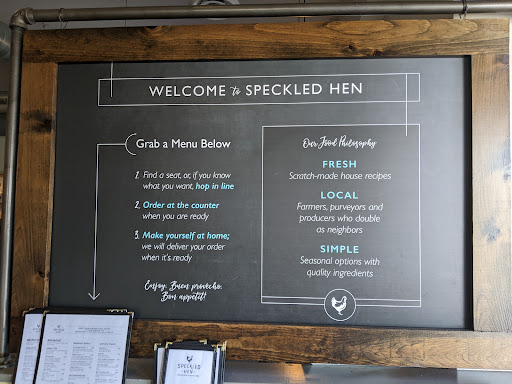 WELCOME to SPECKLED HEN
Grab a Menu Below
1. Find a seat, or, if you know
what you want, hop in line
2. Order at the counter
when you are ready
3. Make yourself at home;
we will deliver your order
when it's ready
Enjoy. Buen provecho.
Bon appetit!
Our Food Philosophy
FRESH
Scratch-made house recipes
LOCAL
Farmers, purveyors and
producers who double
as neighbors
SIMPLE
Seasonal options with
quality ingredients
SPECKLED
HEN